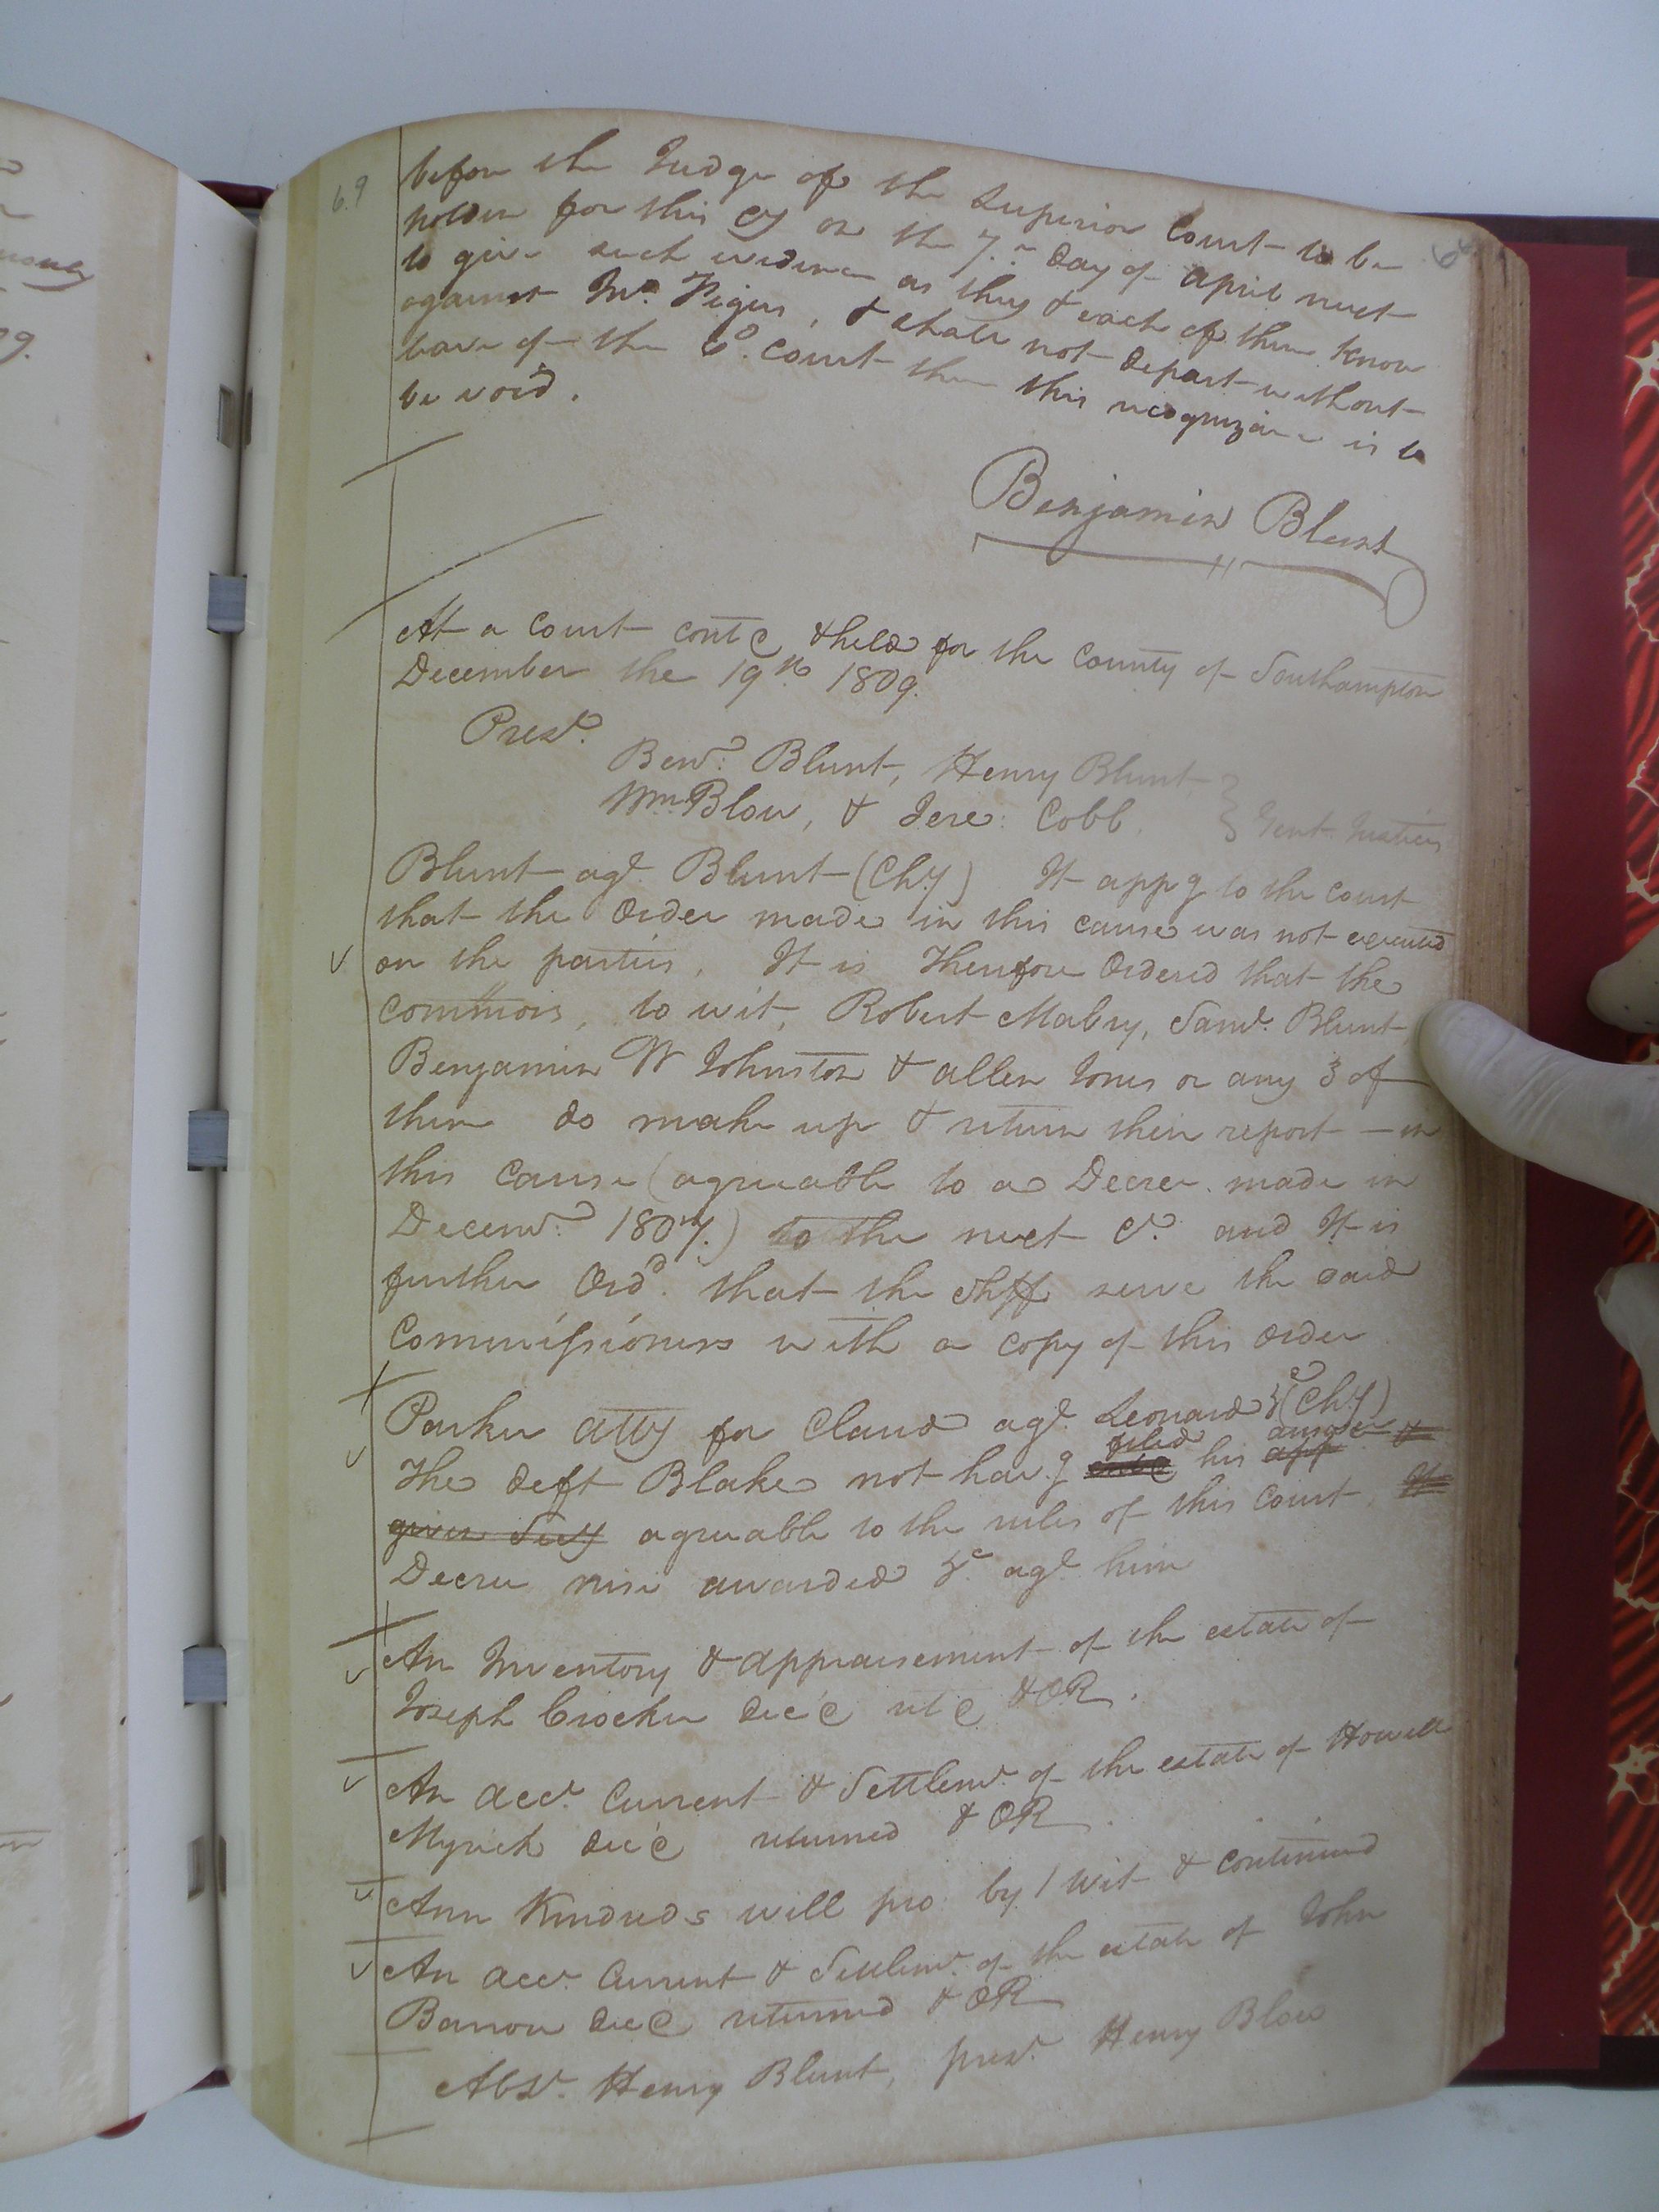 69
before the Judge of the Superior Court to be
holden for this Cy on the 7th day of april next
to give such evidence as they & each of them know
against Jno. Vigus, & shall not depart without
leave of the sd. Court then this recognizance is to
be void.
Benjamin Blunt
At a Court contd & held for the County of Southampton
December the 19th 1809.
Prest.
Benja. Blunt, Henry Blunt
Wm Blow, & Jere: Cobb. Gent. Justices
Blunt agt. Blunt (Chy) It appg to the court
that the Order made in this cause was not executed
on the parties. It is Therefore Ordered that the
commors, to wit, Robert Mabry, Saml. Blunt
Benjamin W Johnston & allen Jones or any 3 of
them do make up & return their report in
this cause (agreeable to a Decree made in
Decemr. 1807.) to the next Ct. and It is
further Ord. that the Shff serve the said
Commissioners with a copy of this order
Parker atty for Claud agt. Leonard &c (Chy)
The deft Blake not havg filed his answer &
given Secy agreeable to the rules of this Court. It
Decree nisi awarded &c agt. him
An Inventory & appraisement of the estate of
Joseph Crocker decd retd & OR.
An acct. Current & Settlemt. of the estate of Howell
Myrick decd returned & OR.
Ann Kindreds will pro. by 1 wit & continued
An acct. Current & Settlemt. of the estate of John
Barrow decd returned & OR
Abst. Henry Blunt, prest. Henry Blow